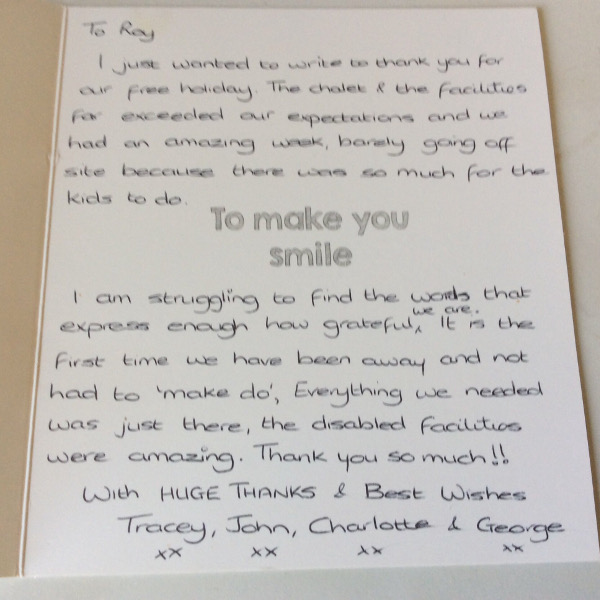 To Roy
I just wanted to write to thank you for
our free holiday. The chalet & the facilities
far exceeded our expectations and we
had an amazing week, barely going off
site because there was so much for the
kids to do.
To make you
smile
I am struggling to find the words that
express enough how grateful, we are. It is the
first time we have been away and not
had to 'make do', Everything we needed
was just there, the disabled facilities
were amazing. Thank you so much!!
With HUGE THANKS & Best Wishes
Tracey, John, Charlotte & George
xx xx xx xx